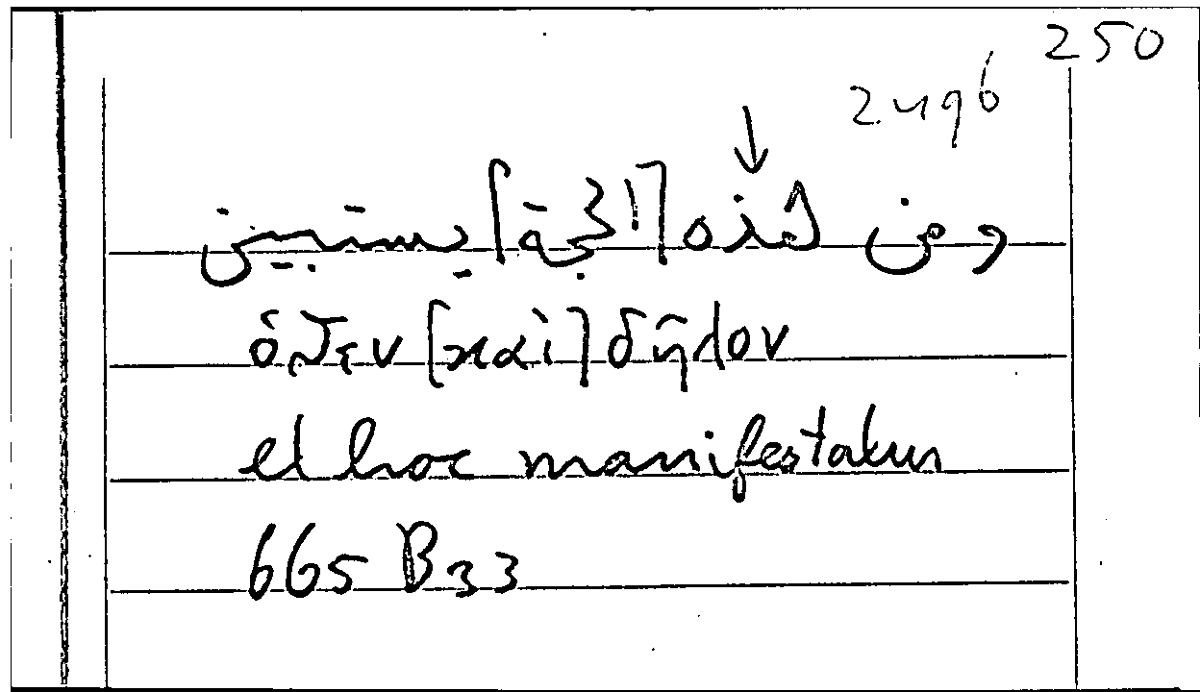 250
2496
ومن هذه [الجهة] يستبين
ὅθεν [καὶ] δῆλον
et hoc manifestatur
665 B 33